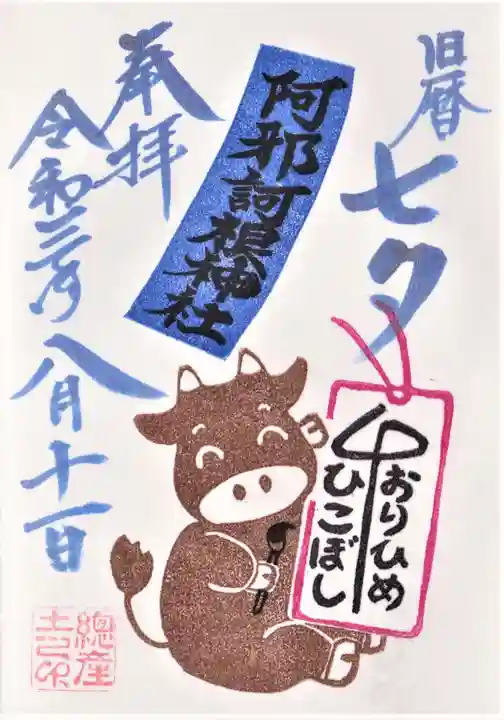 旧暦
七夕
阿邪訶根神社
奉拝
令和三年
八月十一日
おりひめ
ひこぼし